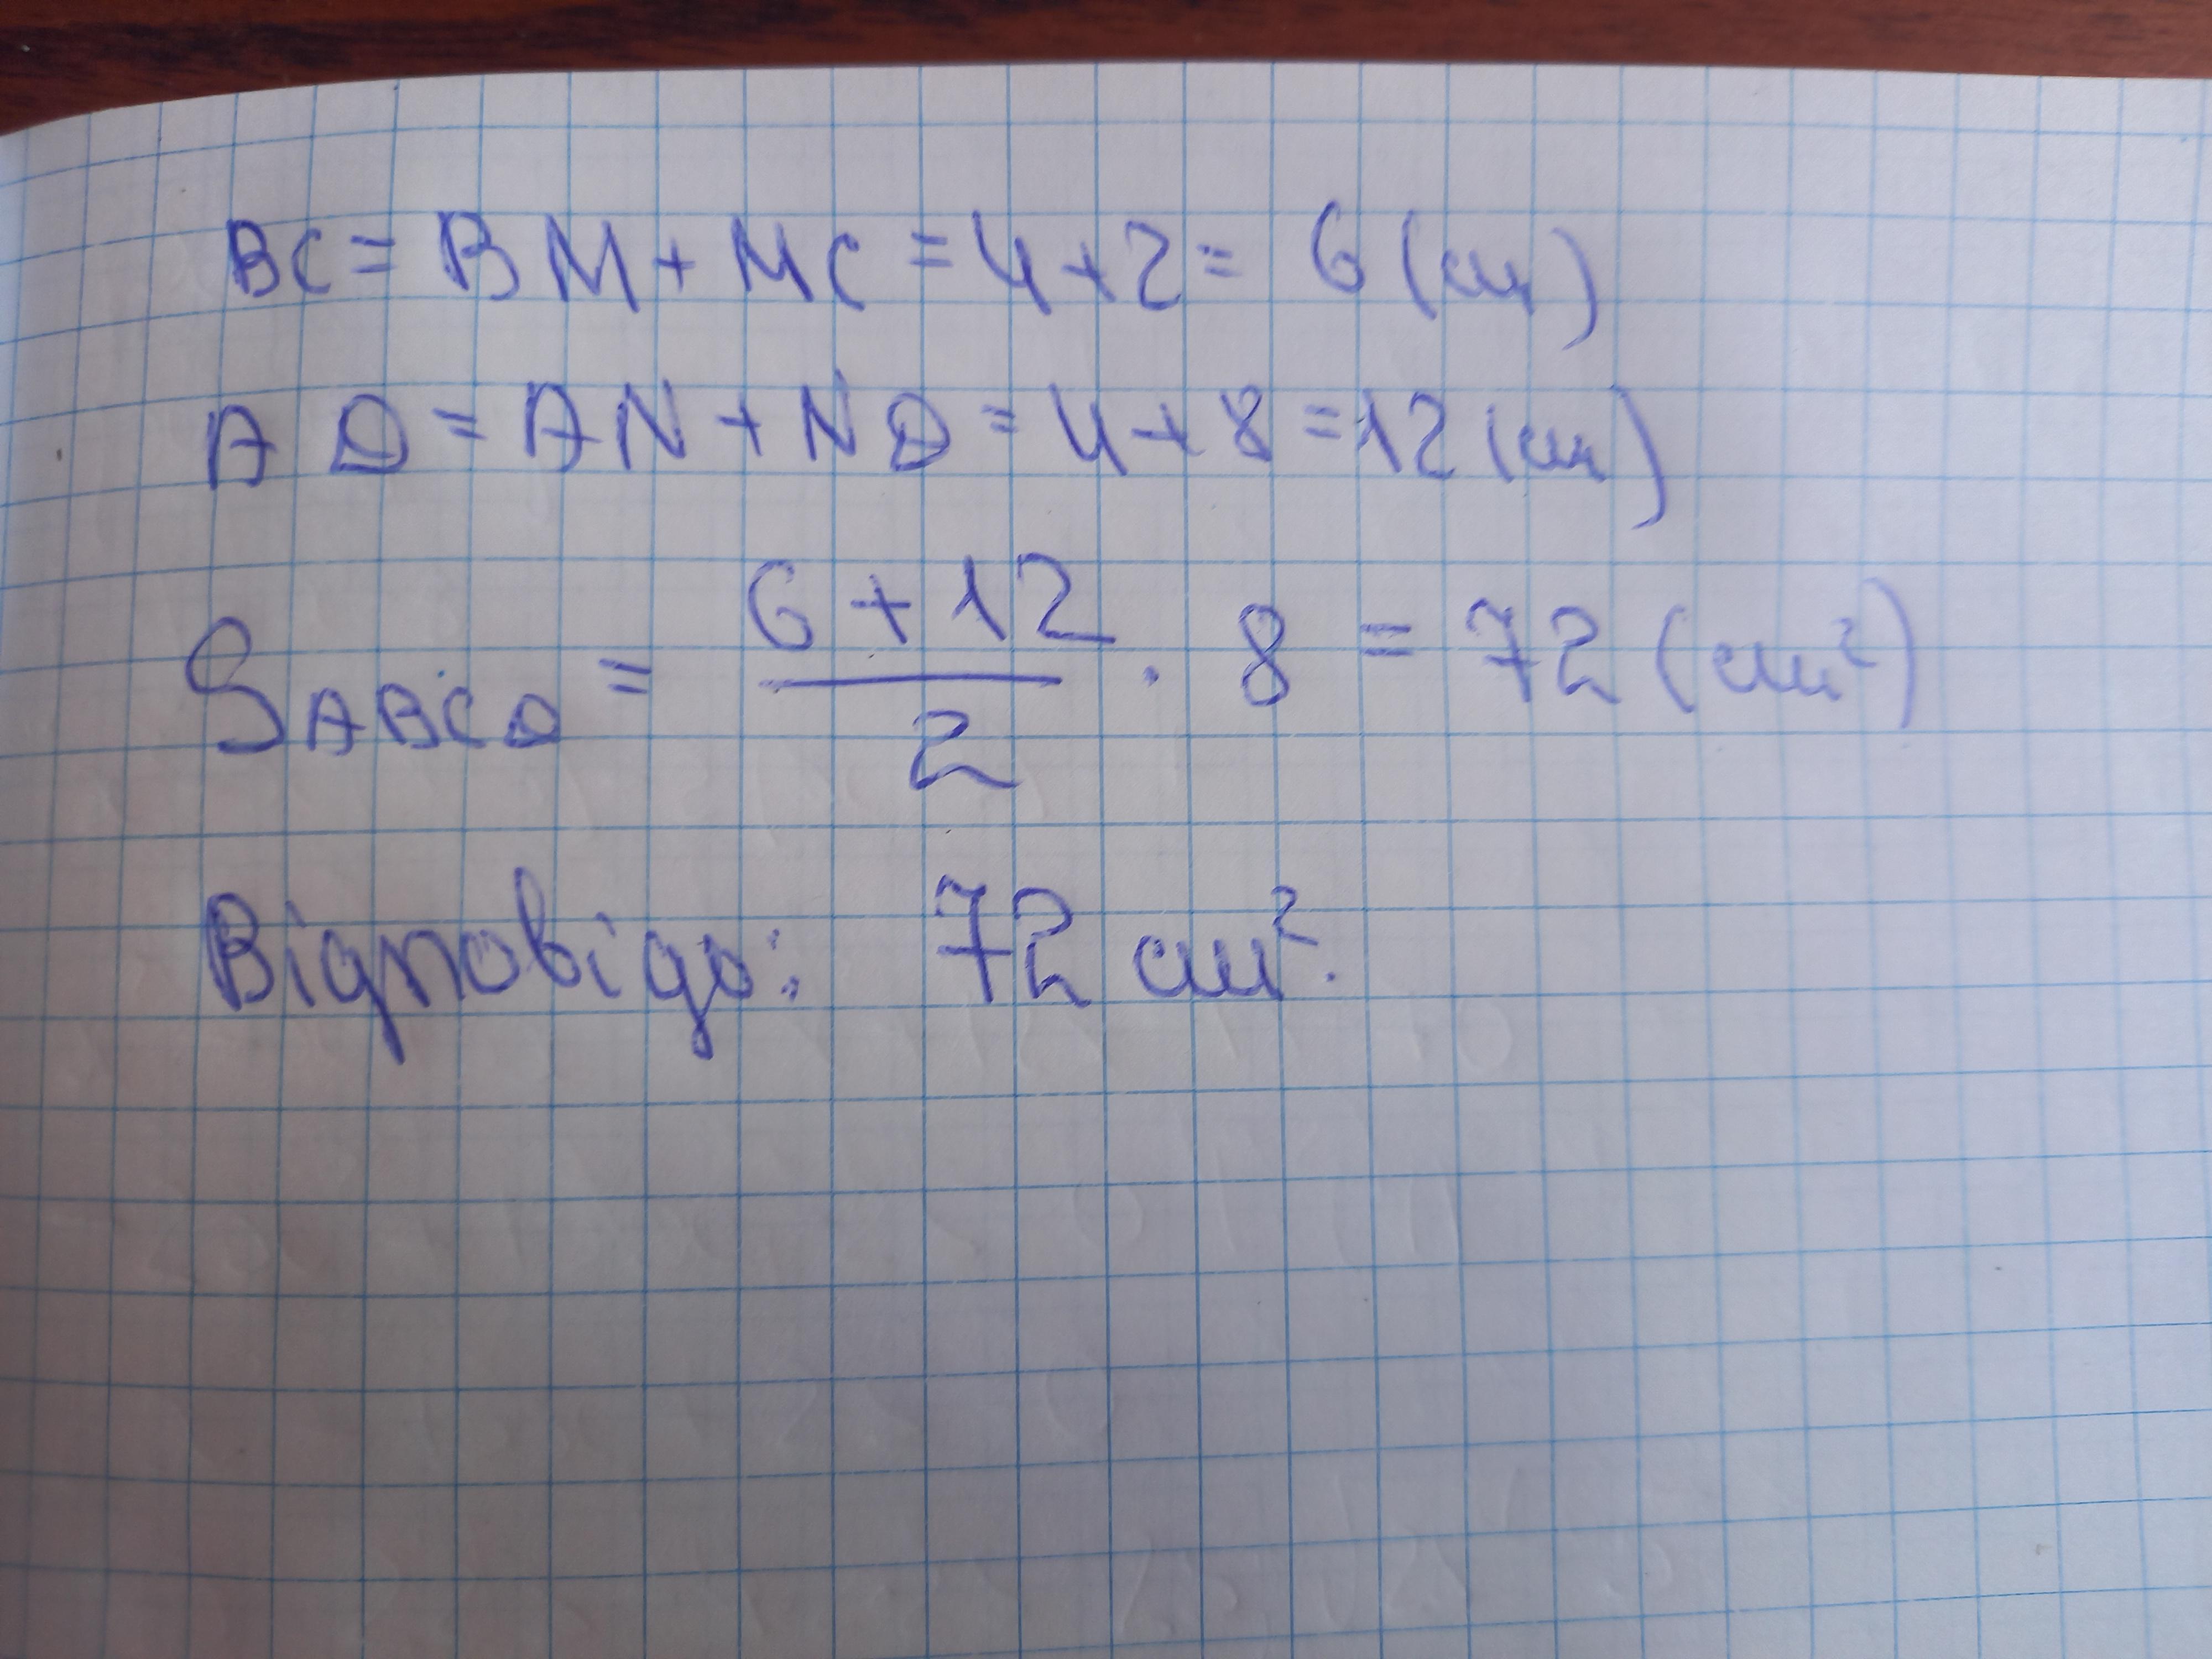 BC = BM + MC = 4 + 2 = 6 (см)
AD = AN + ND = 4 + 8 = 12 (см)
S_ABCD = (6 + 12)/2 · 8 = 72 (см²)
Відповідь: 72 см².